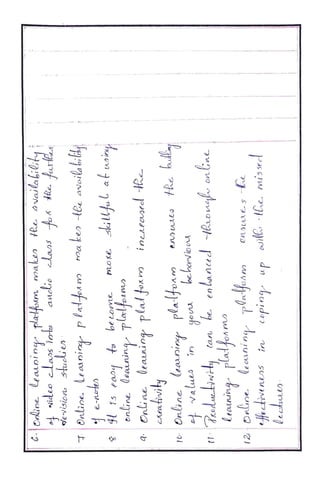 6. Online learning platform makes the availability
of video class into audio class for the further
revision studies
7 Online learning platform makes the availability
of e-notes
8 It is easy to become more skillful at using
online learning platforms.
9. Online learning platform increased the
creativity
10 Online learning platform ensures the
of values in your behaviour
11. Productivity can be enhanced through online
learning platforms
12 Online learning platform ensures the
effectiveness in coping up with the missed
lectures.